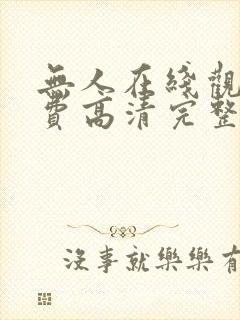 無人在綫觀
費高清完整
沒事就樂樂有